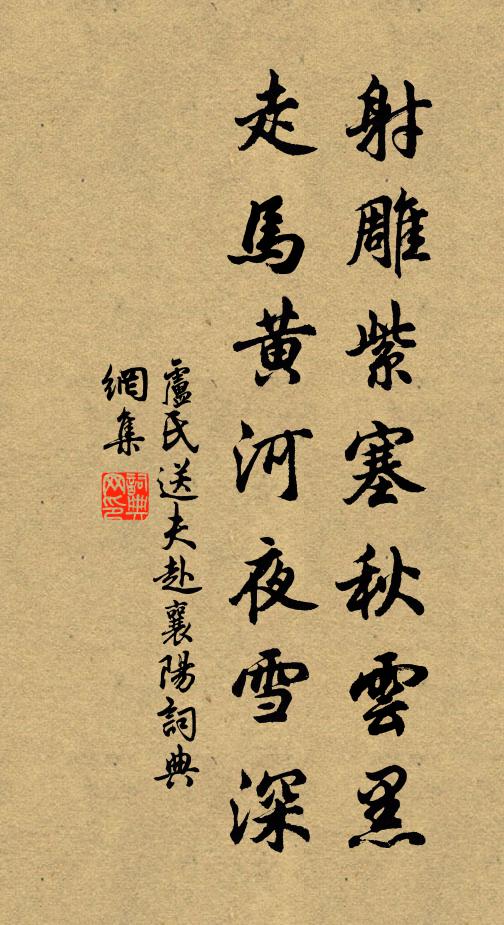 射雕紫塞秋雲黑
走馬黃河夜雪深
盧氏送夫赴襄陽詞典
網集
詞典网印